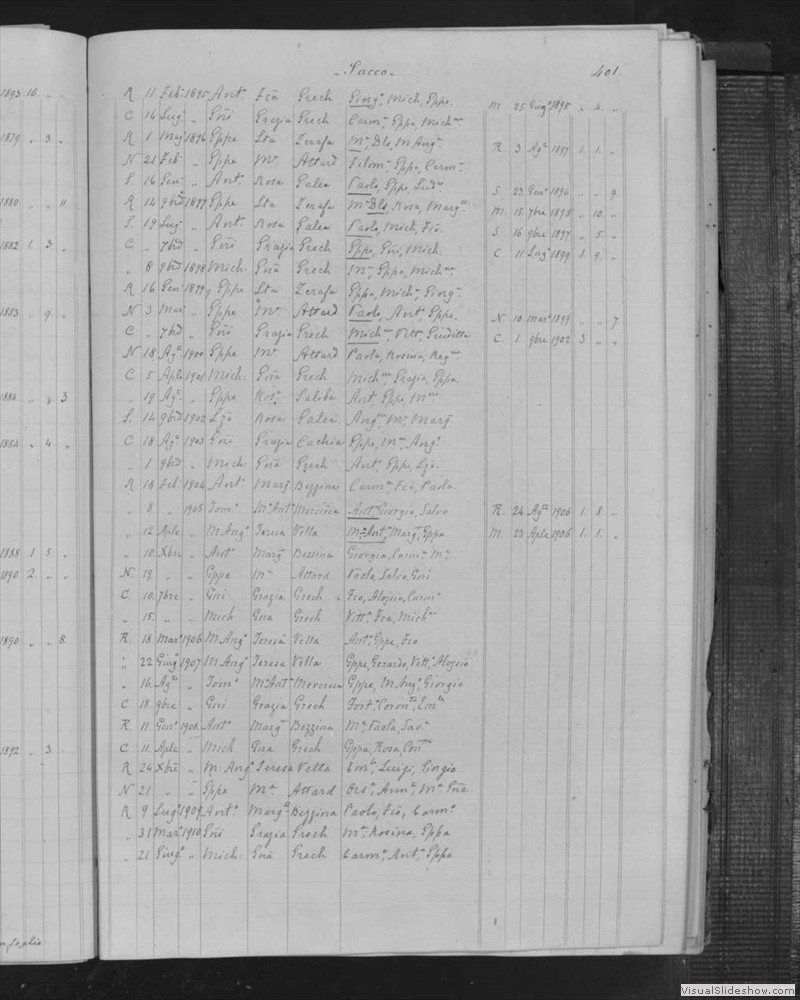 - Sacco - 401.
R 11 Feb. 1895 Ant. Fca Grech Giorgo, Mich, Gppe. M. 25 Giugo 1895 " 4. "
C 16 Lug. " Gni Grazia Grech Carmo, Gppa, Mich
R 1 Mag 1896 Gppe Lta Zerafa Ma, Dlo, M Ango. R. 3 Ago 1897 1. 1. "
N 21 Feb. " Gppe Ma Attard Gppe, Carmo.
S. 16 Gen. " Ant. Rosa Galea Paolo, Gppe, S. 23 Geno 1896 " " 9.
R 14 9bre 1897 Gppe Lta Zerafa Ma Dlo, Rosa, Marga. M. 15 7bre 1898 " 10. "
S. 19 Lug. " Ant. Rosa Galea Paolo, Mich, Fco. S. 16 9bre 1897 " 5. "
C " 7bre " Gni Grazia Grech Gppe, Gni, Mich. C. 11 Lugo 1899 1. 9. "
" 8 9bre 1898 Mich. Gna Grech Ma, Gppa, Mich
R 16 Gen. 1899 Gppe Lta Zerafa Gppa, Mich, Giorgo
N 3 Mar. " Gppe Ma Attard Paolo, Ant, Gppe. N. 10 Maro 1899 " " 7
C " 7bre " Gni Grazia Grech Mich, Vitt, Giuditta C. 1. 9bre 1902 3 " "
N 18 Ago 1900 Gppe Ma Attard Paola, Rosina, Reg
C 5 Aple 1901 Mich. Gna Grech Mich, Grazia, Gppa.
" 19 Ago. " Gppe Rosa Saliba Ant, Gppe, M
S. 14 9bre 1902 Lzo Rosa Galea Ang, Ma Marg.
C 18 Ago 1903 Gni Grazia Cachia Gppe, Ma, Ango
" 1 9bre " Mich. Gna Grech Ant. Gppe, Lzo.
R 18 1904 Ant. Marg Bezzina Carmo, Fco, Paola.
" 8 " 1905 Tomo Ma Ant Mercieca Anto, Giorgio, Salvo R. 24 Ago 1906 1. 8. "
" 12 Aple " M Ango Teresa Vella Ma Anta, Marg, Gppa M. 23 Aple 1906 1. 1. "
" 10. Xbre " Anto Marg Bezzina Georgia, Carma, Ma
N. 19 " " Gppe Ma Attard Paolo, Salvo, Gni
C. 10. 7bre " Gni Grazia Grech Fco, Aloysio, Carmo
" 15. " " Mich Gna Grech Vitto, Fco, Mich
R. 18. Maro 1906 M. Ango Teresa Vella Anto, Gppe, Fco
" 22 Giugo 1907 M. Ango Teresa Vella Gppe, Gerardo, Vitto, Aloysio
" 16. Ago " Tomo Ma Ant Mercieca Gppe, M. Ango, Giorgio
C 18. 9bre " Gni Grazia Grech Fort, Coron, Em
R. 11. Geno 1908. Anto Marg Bezzina Ma, Paola, Sav
C 11. Aple " Mich Gna Grech Gppa, Rosa, Con
R 24 Xbre " M. Ango Teresa Vella Em, Luigi, Giorgio
N 21 " " Gppe Ma Attard Ors, Anna, Ma Gna.
R 9 Lugo 1909 Anto. Marga Bezzina Paolo, Fco, Carmo
" 31 Maro 1910 Gni Grazia Grech Ma, Rosina, Gppa
" 21 Giugo " Mich. Gna Grech Carmo, Anto, Gppa
1893 16. " "
1879 " 3 "
1880 " " 11
1882 1. 3 "
1883 " 9. "
1884 " " 3
1884 " 4. "
1888 1. 5 "
1890 2. " "
1890 " " 8.
1892 " 3
VisualSlideshow.com